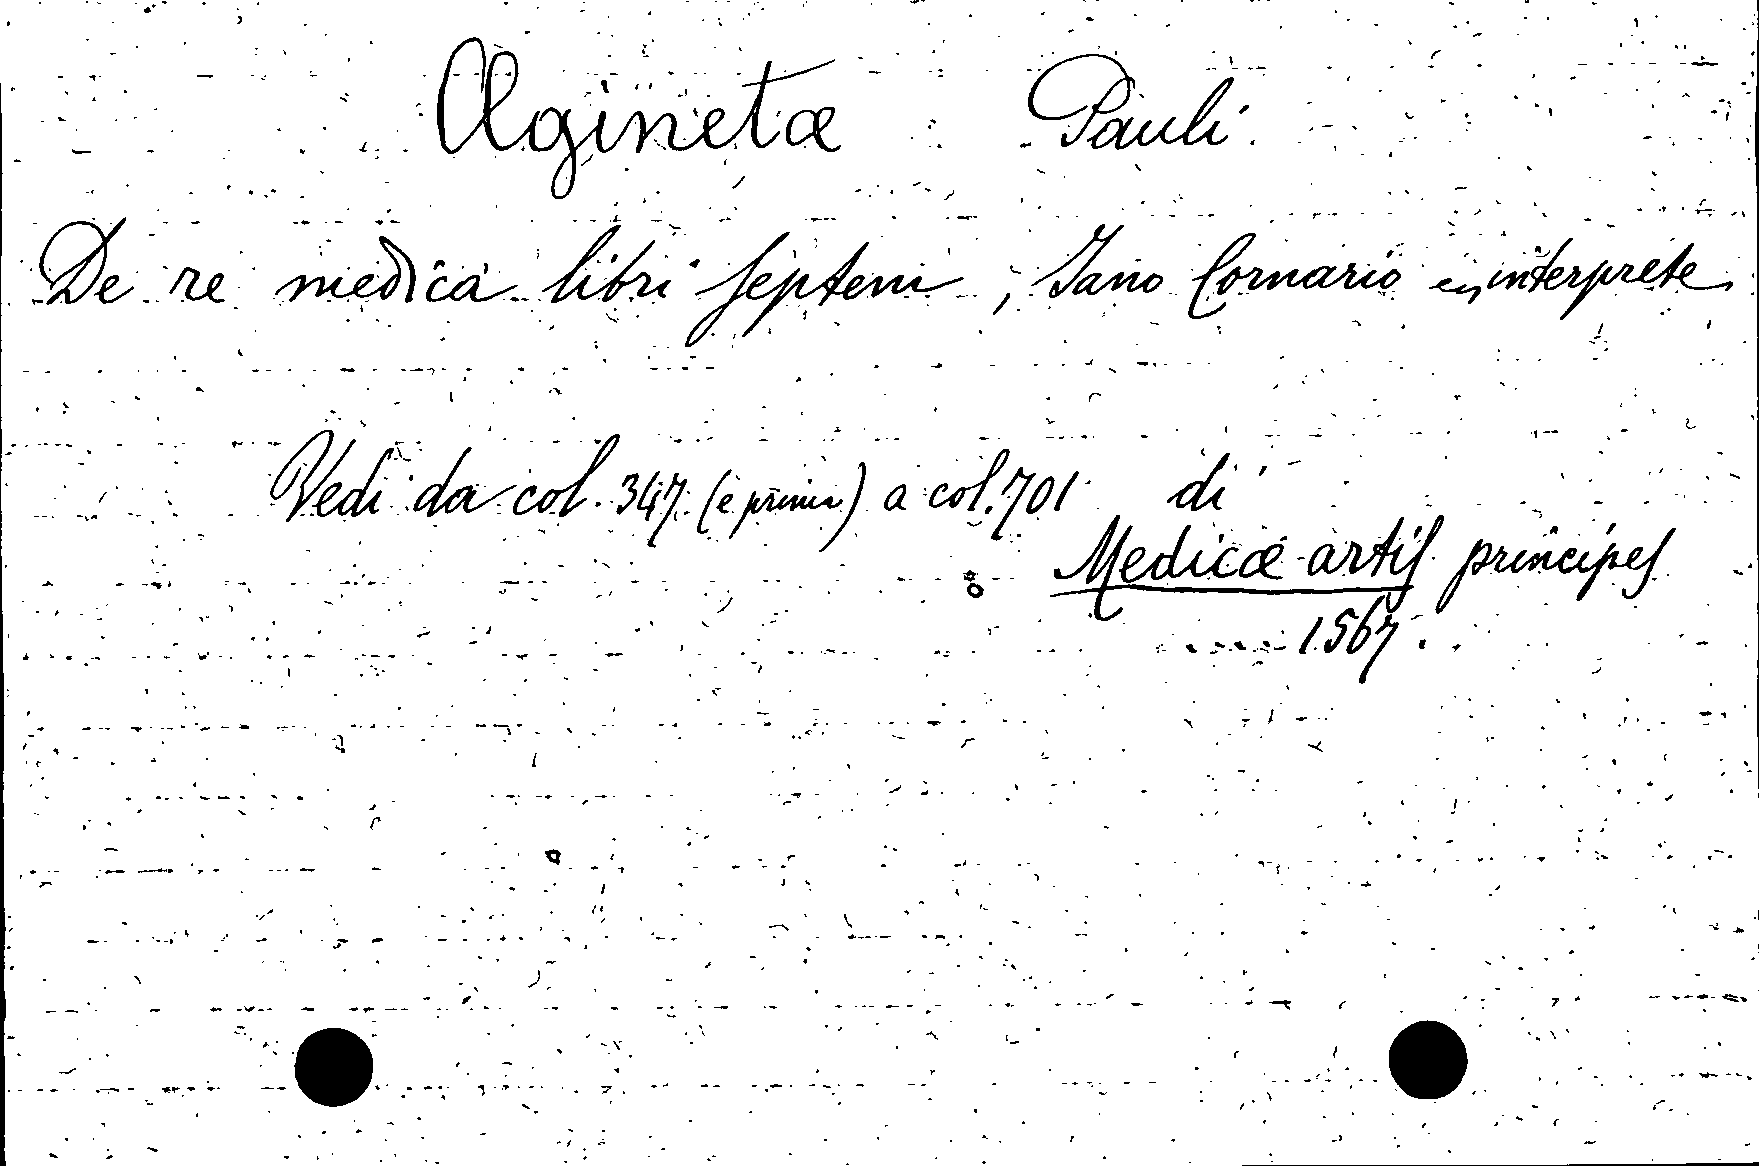 Æginetæ Pauli
De re medica libri septem, Jano Cornario interprete
Vedi da col. 347 (è prima) a col. 701 di
Medicæ artis principes
1567.